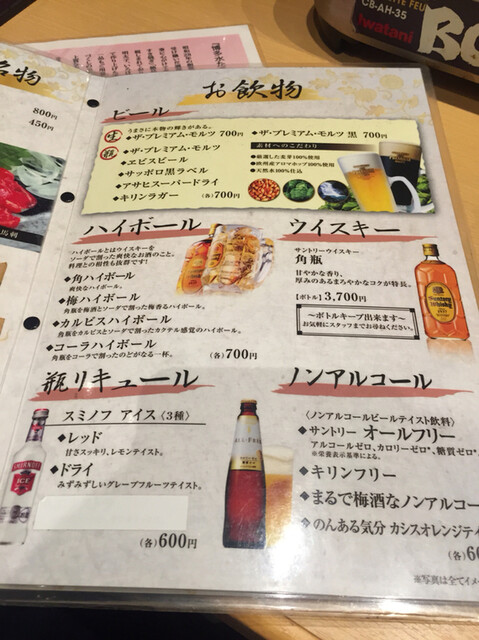 CB-AH-35
Iwatani
BO
名物
800円
450円
馬刺
お飲物
ビール
生
うまさに本物の輝きがある。
◆ザ・プレミアム・モルツ 700円
◆ザ・プレミアム・モルツ 黒 700円
瓶
◆ザ・プレミアム・モルツ
◆ヱビスビール
◆サッポロ黒ラベル
◆アサヒスーパードライ
◆キリンラガー (各)700円
素材へのこだわり
●厳選した麦芽100%使用
●欧州産アロマホップ100%使用
●天然水100%仕込
ハイボール
ハイボールとはウイスキーを
ソーダで割った爽快なお酒のこと。
料理との相性も抜群です!
◆角ハイボール
爽快なハイボール。
◆梅ハイボール
角瓶を梅酒とソーダで割った梅香るハイボール。
◆カルピスハイボール
角瓶をカルピスとソーダで割ったカクテル感覚のハイボール。
◆コーラハイボール
角瓶をコーラで割ったのどがなる一杯。
(各)700円
ウイスキー
サントリーウイスキー
角瓶
甘やかな香り、
厚みのあるまろやかなコクが特長。
【ボトル】3,700円
~ボトルキープ出来ます~
お気軽にスタッフまでお尋ねください。
瓶リキュール
スミノフ アイス〈3種〉
◆レッド
甘さスッキリ、レモンテイスト。
◆ドライ
みずみずしいグレープフルーツテイスト。
(各)600円
SMIRNOFF
ICE
ノンアルコール
〈ノンアルコールビールテイスト飲料〉
◆サントリー オールフリー
アルコールゼロ、カロリーゼロ*、糖質ゼロ*
※栄養表示基準による。
◆キリンフリー
◆まるで梅酒なノンアルコー
◆のんある気分 カシスオレンジテイ
(各)60
※写真は全てイメ